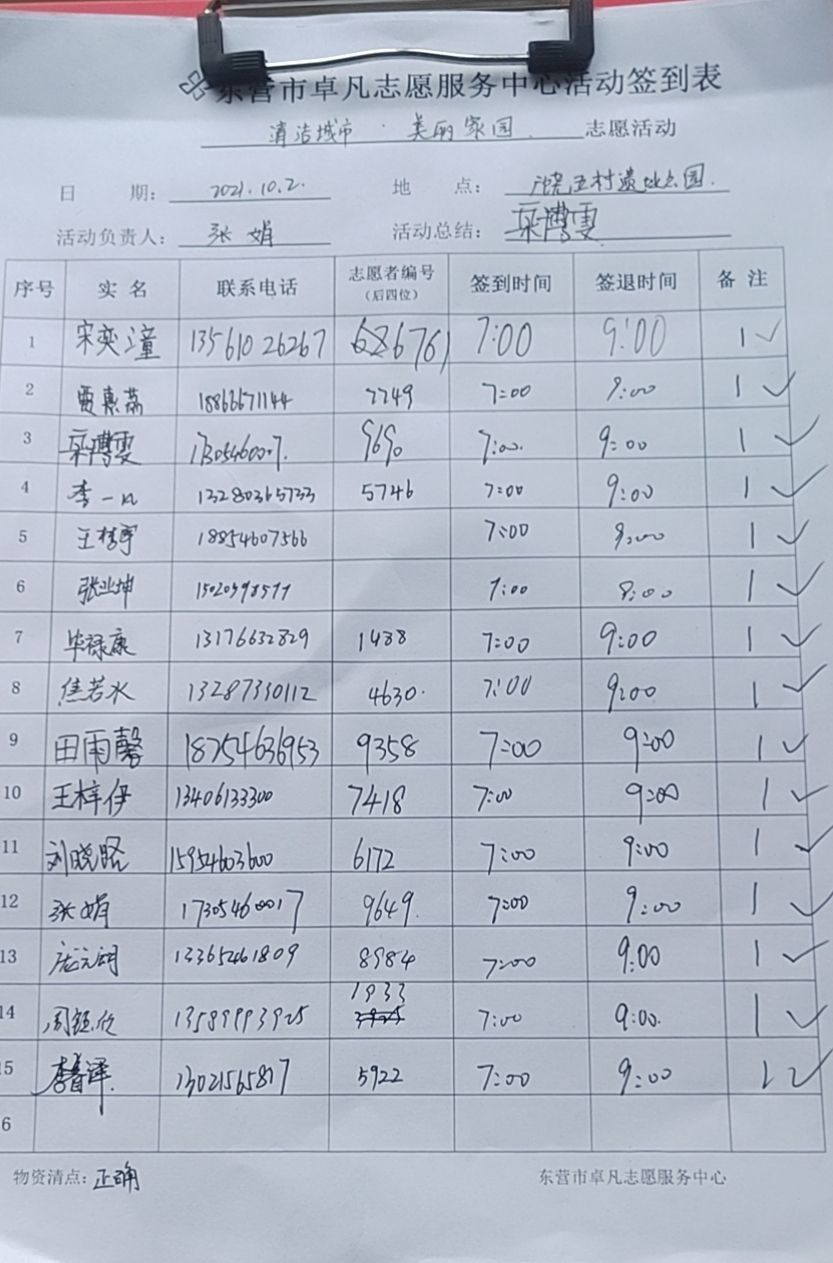 东营市卓凡志愿服务中心活动签到表
清洁城市 · 美丽家园 志愿活动
日 期: 2021.10.2. 地 点: 广饶五村遗址公园.
活动负责人: 张娟 活动总结:
序号 实名 联系电话 志愿者编号(后四位) 签到时间 签退时间 备注
1 宋奕潼 13561026267 686761 7:00 9:00 1 ✓
2 贾熹荔 18866671144 7749 7:00 9:00 1 ✓
3 17305460017. 9690 7:00. 9:00 1 ✓
4 李一凡 13280365733 5746 7:00 9:00 1 ✓
5 王梓宇 18854607566 7:00 9:00 1 ✓
6 张业坤 7:00 9:00 1 ✓
7 毕禄康 13176632829 1488 7:00 9:00 1 ✓
8 焦若水 13287330112 4630. 7:00 9:00 1 ✓
9 田雨馨 18754636953 9358 7:00 9:00 1 ✓
10 王梓伊 13406133300 7418 7:00 9:00 1 ✓
11 刘晓路 15954603600 6172 7:00 9:00 1 ✓
12 张娟 17305460017 9649. 7:00 9:00 1 ✓
13 13365461809 8984 7:00 9:00 1 ✓
14 周钰欣 13589993925 1933 7:00 9:00. 1 ✓
15 李春译. 13021565817 5922 7:00 9:00 1 ✓
6
物资清点: 正确 东营市卓凡志愿服务中心